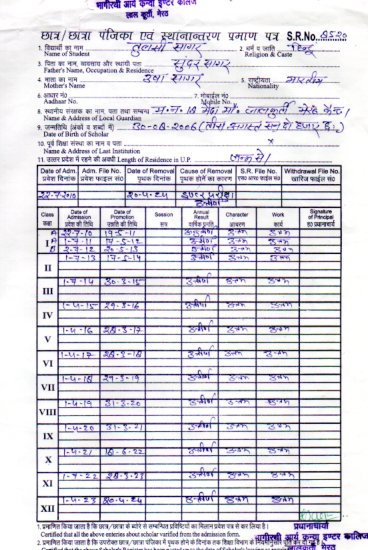 भागीरथी आर्य कन्या इण्टर कालेज
लाल कुर्ती, मेरठ
छात्र/छात्रा पंजिका एवं स्थानान्तरण प्रमाण पत्र S.R.No. 8520
1. विद्यार्थी का नाम तुलसी सागर 2. धर्म व जाति हिन्दू
Name of Student Religion & Caste
3. पिता का नाम, व्यवसाय और स्थायी पता सुंदर सागर
Father's Name, Occupation & Residence
4. माता का नाम उषा सागर 5. राष्ट्रीयता भारतीय
Mother's Name Nationality
6. आधार नं० 7. मोबाईल नं०
Aadhaar No. Mobile No.
8. स्थानीय संरक्षक का नाम, पता तथा सम्बन्ध म.न. लालकुर्ती मेरठ कैन्ट
Name & Address of Local Guardian
9. जन्मतिथि (अंकों व शब्दों में) 30-08-2006 (तीस अगस्त सन् दो हजार छः)
Date of Birth of Scholar
10. पूर्व शिक्षा संस्था का नाम व पता x
Name & Address of Last Institution
11. उत्तर प्रदेश में रहने की अवधी Length of Residence in U.P. जन्म से
Date of Adm. Adm. File No. Date of Removal Cause of Removal S.R. File No. Withdrawal File No.
प्रवेश दिनांक प्रवेश फाइल सं० पृथक दिनांक पृथक होने का कारण एस० आर० फाइल सं० खारिज फाइल सं०
22-7-2010 20-4-24 इण्टर परीक्षा
उत्तीर्ण
Class Date of Admission Date of Promotion Session Annual Result Character Work Signature of Principal
कक्षा प्रवेश की तिथि उन्नति की तिथि सत्र वार्षिक आचरण कार्य ह० प्रधानाचार्य
A 22-7-10 19-5-11 उत्तीर्ण उत्तम उत्तम
I A 1-7-11 17-5-12 उत्तीर्ण उत्तम उत्तम
B 2-7-12 20-5-13 उत्तीर्ण उत्तम उत्तम
II 1-7-13 17-5-14 उत्तीर्ण उत्तम उत्तम
III 1-7-14 30-3-15 उत्तीर्ण उत्तम उत्तम
IV 1-4-15 29-3-16 उत्तीर्ण उत्तम उत्तम
V 1-4-16 28-3-17 उत्तीर्ण उत्तम उत्तम
VI 1-4-17 28-3-18 उत्तीर्ण उत्तम उत्तम
VII 1-4-18 29-3-19 उत्तीर्ण उत्तम उत्तम
VIII 1-4-19 31-3-20 उत्तीर्ण उत्तम उत्तम
IX 1-4-20 31-3-21 उत्तीर्ण उत्तम उत्तम
X 1-4-21 18-6-22 उत्तीर्ण उत्तम उत्तम
XI 1-7-22 28-3-23 उत्तीर्ण उत्तम उत्तम
XII 1-4-23 20-4-24 उत्तीर्ण उत्तम उत्तम
प्रधानाचार्या
1. प्रमाणित किया जाता है कि छात्र/छात्रा के ब्योरे से सम्बन्धित प्रविष्टियों का मिलान प्रवेश पत्र से कर लिया है।
भागीरथी आर्य कन्या इण्टर कालिज
Certified that all the above entries about scholar varified from the admission form.
लालकुर्ती, मेरठ
2. प्रमाणित किया जाता है कि उपरोक्त छात्र/छात्रा पंजिका में पृथक होने के दिनांक तक शिक्षा विभाग के नियमानुसार